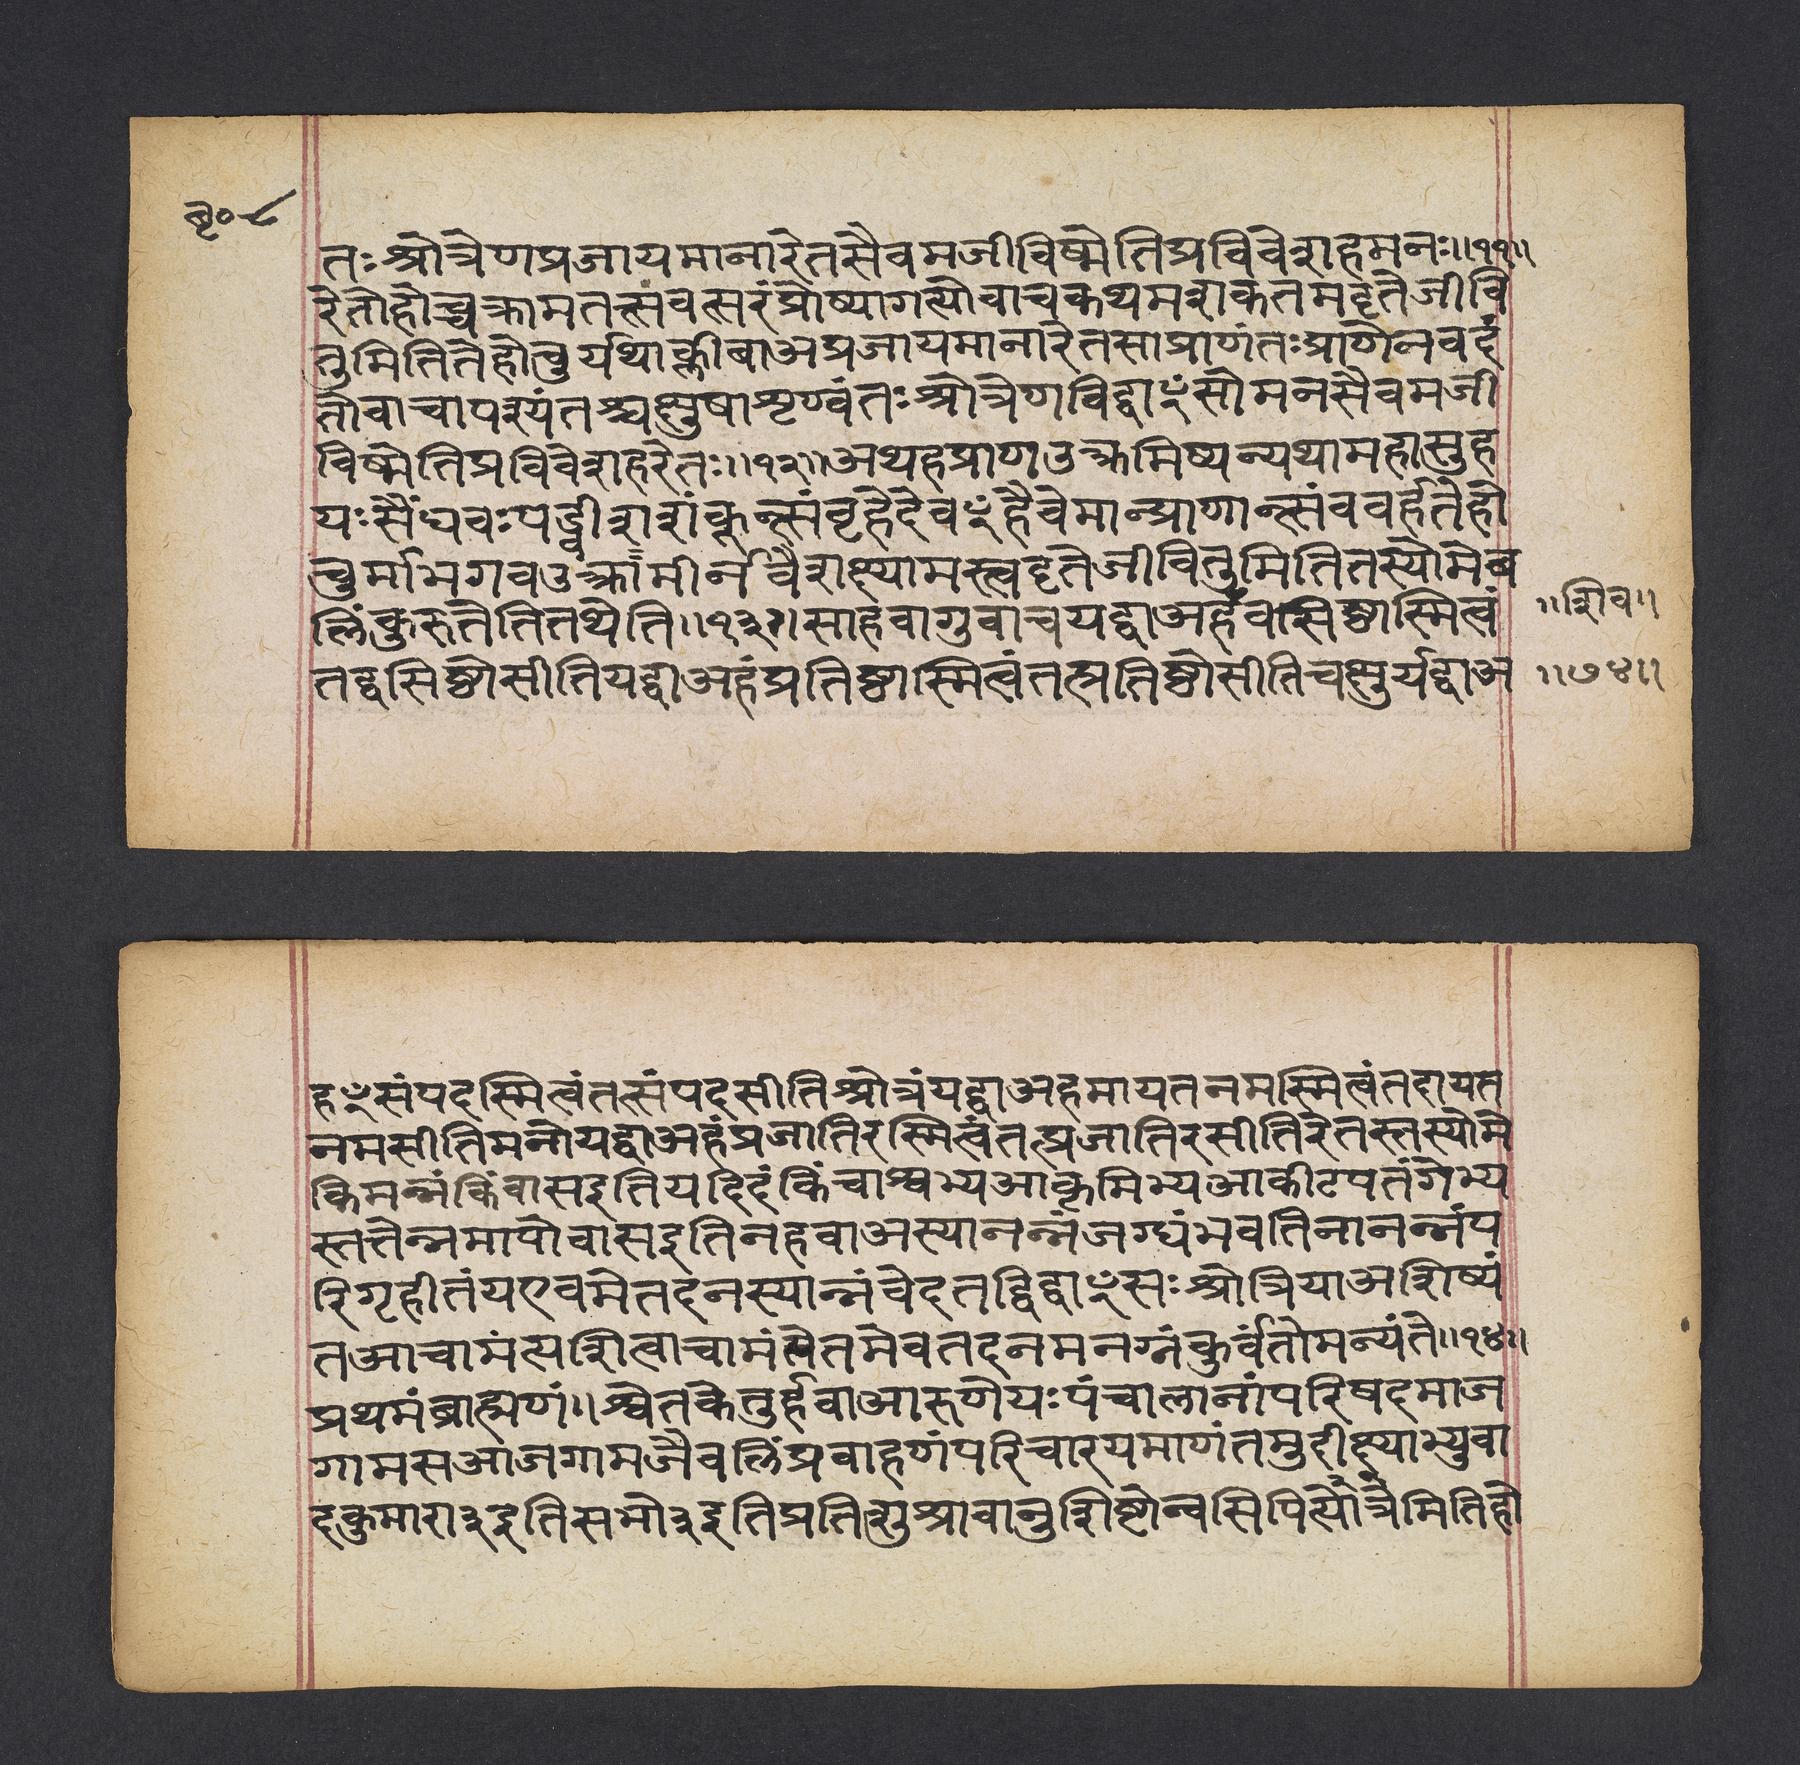 बृ० ८
तः श्रोत्रेण प्रजायमाना रेतसैवमजीविष्मेति प्रविवेश ह मनः ॥ ११ ॥
रेतो होच्चक्राम तत्संवत्सरं प्रोष्यागत्योवाच कथमशकत मदृते जीवि
तुमिति ते होचुर्यथा क्लीबा अप्रजायमाना रेतसा प्राणंतः प्राणेन वदं
तो वाचा पश्यंतश्चक्षुषा शृण्वंतः श्रोत्रेण विद्वाꣳसो मनसैवमजी
विष्मेति प्रविवेश ह रेतः ॥ १२ ॥ अथ ह प्राण उत्क्रमिष्यन्यथा महासुह
यः सैंधवः पड्वीशशंकून्त्संवृहेदेवꣳ हैवेमान्प्राणान्त्संववर्ह ते हो
चुर्मा भगव उत्क्रामीर्न वै शक्ष्यामस्त्वदृते जीवितुमिति तस्यो मे ब
लिं कुरुतेति तथेति ॥ १३ ॥ सा ह वागुवाच यद्वा अहं वसिष्ठास्मि त्वं
॥ शिव ॥
तद्वसिष्ठोसीति यद्वा अहं प्रतिष्ठास्मि त्वं तत्प्रतिष्ठोसीति चक्षुर्यद्वा अ
॥ ७४ ॥
हꣳ संपदस्मि त्वं तत्संपदसीति श्रोत्रं यद्वा अहमायतनमस्मि त्वं तदायत
नमसीति मनो यद्वा अहं प्रजातिरस्मि त्वं तत्प्रजातिरसीति रेतस्तस्यो मे
किमन्नं किं वास इति यदिदं किंचाश्वभ्य आकृमिभ्य आकीटपतंगेभ्य
स्तत्तेन्नमापो वास इति न ह वा अस्यानन्नं जग्धं भवति नानन्नं प
रिगृहीतं य एवमेतदनस्यान्नं वेद तद्विद्वाꣳसः श्रोत्रिया अशिष्यं
त आचामंत्यशित्वाचामंत्येतमेव तदनमनग्नं कुर्वंतो मन्यंते ॥ १४ ॥
प्रथमं ब्राह्मणं ॥ श्वेतकेतुर्ह वा आरुणेयः पंचालानां परिषदमाज
गाम स आजगाम जैवलिं प्रवाहणं परिचारयमाणं तमुदीक्ष्याभ्युवा
द कुमारा३ इति स भो३ इति प्रतिशुश्रावानुशिष्टोन्वसि पित्रेत्योमिति हो